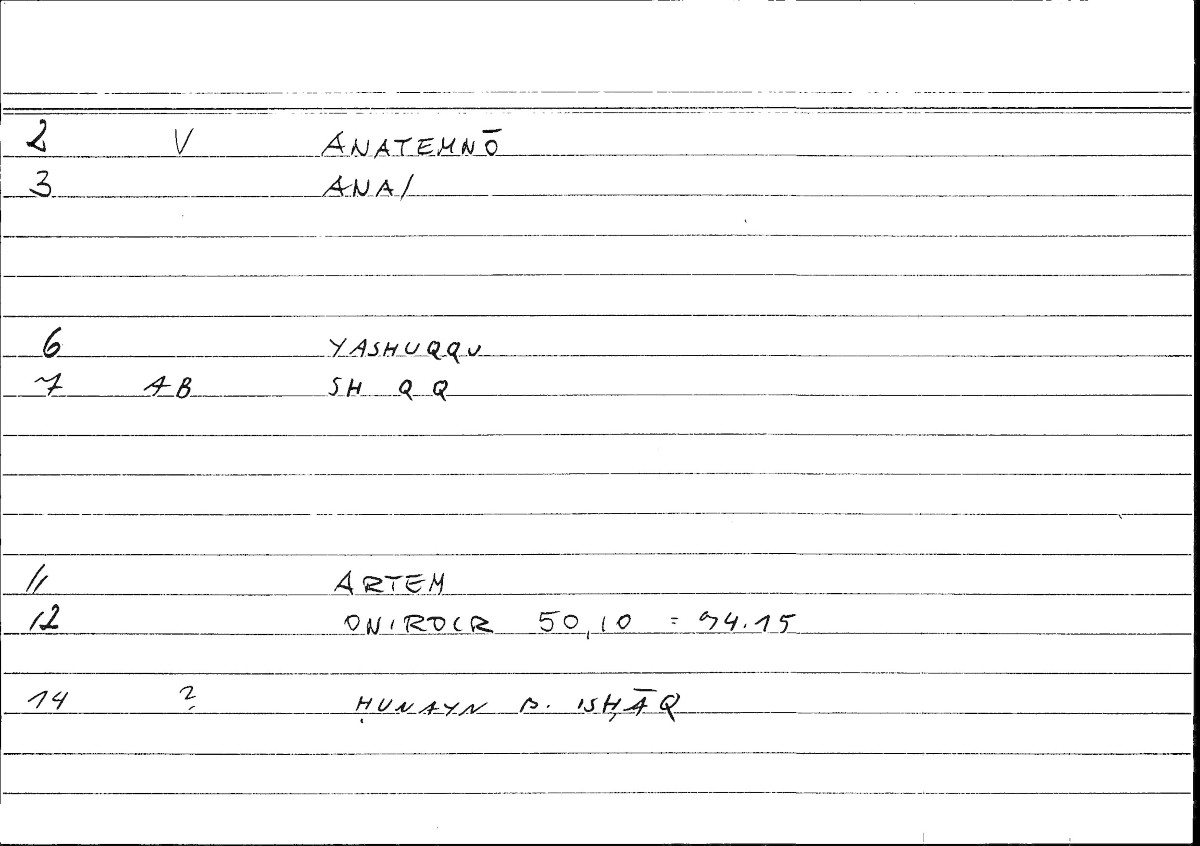 2 V ANATEMNŌ
3 ANA/
6 YASHUQQU
7 AB SH Q Q
11 ARTEM
12 ONIROCR 50,10 = 94.15
14 ? ḤUNAYN B. ISḤĀQ